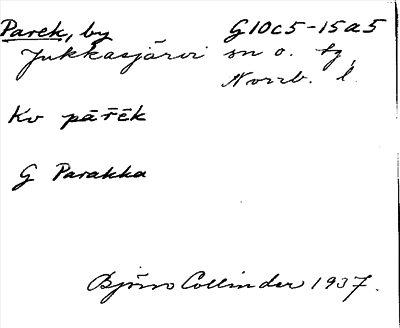 Parek, by G10c5-15a5
Jukkasjärvi sn o. tg,
Norrb. l.
Kv pārēk
G Parakka
Björn Collinder 1937.